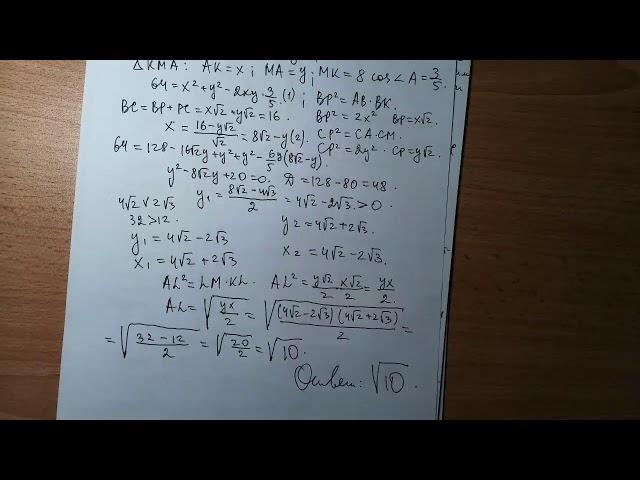 ΔKMA: AK = x; MA = y; MK = 8 cos∠A = 3/5.
64 = x² + y² − 2xy · 3/5 (1); BP² = AB · BK.
BC = BP + PC = x√2 + y√2 = 16. BP² = 2x² BP = x√2.
x = (16 − y√2)/√2 = 8√2 − y (2). CP² = CA · CM.
64 = 128 − 16√2y + y² + y² − 6/5 y(8√2 − y). CP² = 2y² · CP = y√2.
y² − 8√2y + 20 = 0. D = 128 − 80 = 48.
4√2 ∨ 2√3 y₁ = (8√2 − 4√3)/2 = 4√2 − 2√3 > 0.
32 > 12. y₂ = 4√2 + 2√3.
y₁ = 4√2 − 2√3
x₁ = 4√2 + 2√3 x₂ = 4√2 − 2√3.
AL² = LM · KL. AL² = y√2/2 · x√2/2 = yx/2.
AL = √(yx/2) = √((4√2 − 2√3)(4√2 + 2√3)/2) =
= √((32 − 12)/2) = √(20/2) = √10.
Ответ: √10.